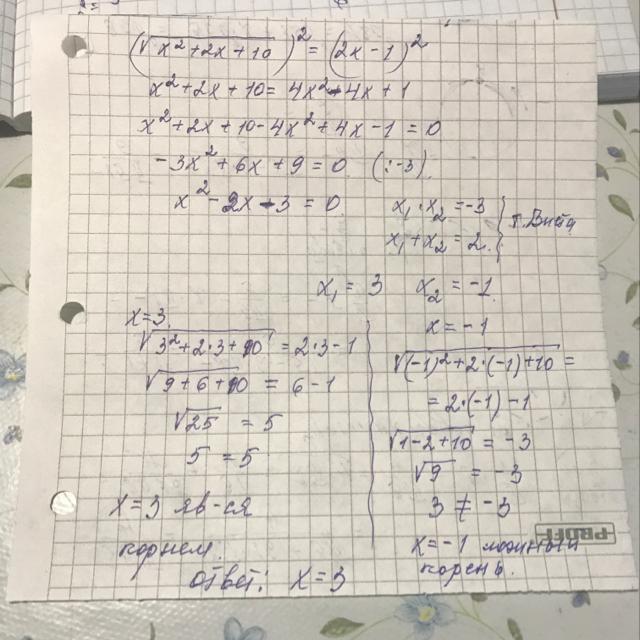 (√x²+2x+10)² = (2x-1)²
x²+2x+10 = 4x²-4x+1
x²+2x+10-4x²+4x-1=0
-3x²+6x+9=0 (:-3)
x²-2x-3=0
x₁·x₂=-3
x₁+x₂=2
т. Виета
x₁=3 x₂=-1
x=3
√3²+2·3+10 = 2·3-1
√9+6+10 = 6-1
√25 = 5
5=5
x=3 яв-ся
корнем.
x=-1
√(-1)²+2·(-1)+10 =
=2·(-1)-1
√1-2+10 = -3
√9 = -3
3 ≠ -3
x=-1
корень.
Ответ: x=3
PROFF